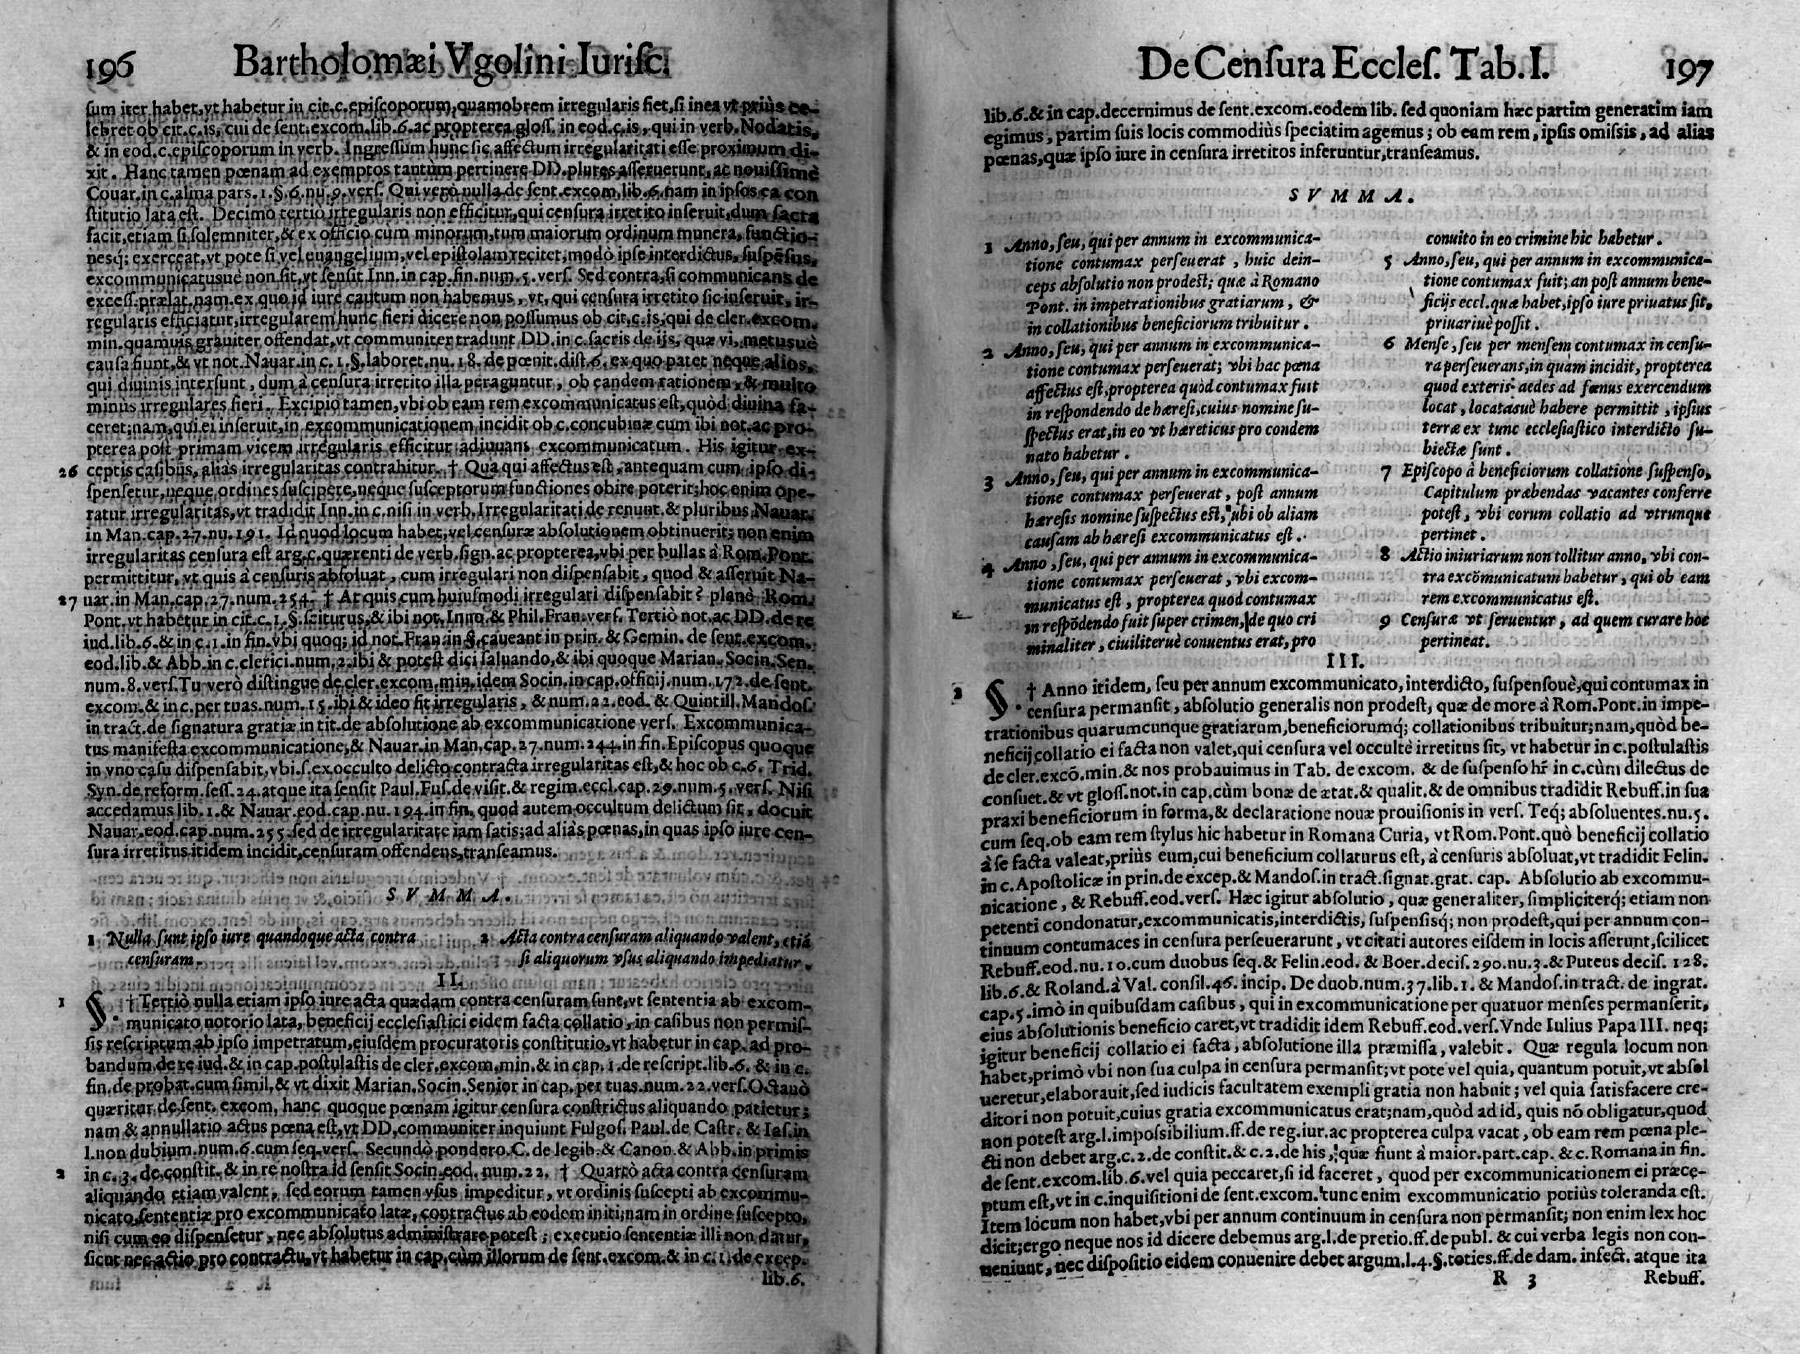 196 Bartholomæi Vgolini Iurisc.
sum iter habet, vt habetur in cit.c.episcoporum, quamobrem irregularis fiet, si in ea vt priùs ce-
lebret ob cit.c.is, cui de sent.excom.lib.6.ac propterea gloss. in eod.c.is, qui in verb. Nodatis,
& in eod.c.episcoporum in verb. Ingressum hunc sic affectum irregularitati esse proximum di-
xit. Hanc tamen pœnam ad exemptos tantùm pertinere DD. plures asseruerunt, ac nouissimè
Couar. in c.alma pars.1.§.6.nu.9.vers. Qui verò nulla de sent.excom.lib.6.nam in ipsos ea con
stitutio lata est. Decimo tertio irregularis non efficitur, qui censura irretito inseruit, dum sacra
facit, etiam si solemniter, & ex officio cum minorum, tum maiorum ordinum munera, functio-
nesq; exerceat, vt pote si vel euangelium, vel epistolam recitet; modò ipse interdictus, suspēsus,
excommunicatusuè non sit, vt sensit Inn. in cap.fin.num.5.vers. Sed contra, si communicans de
excess.prælat.nam.ex quo id iure cautum non habemus, vt, qui censura irretito sic inseruit, ir-
regularis efficiatur, irregularem hunc fieri dicere non possumus ob cit.c.is, qui de cler.excom.
min.quamuis grauiter offendat, vt communiter tradunt DD. in c.sacris de ijs, quæ vi, metusuè
causa fiunt, & vt not. Nauar. in c.1.§.laboret.nu.18.de pœnit.dist.6. ex quo patet neque alios,
qui diuinis intersunt, dum à censura irretito illa peraguntur, ob eandem rationem, & multo
minus irregulares fieri. Excipio tamen, vbi ob eam rem excommunicatus est, quòd diuina fa-
ceret; nam, qui ei inseruit, in excommunicationem incidit ob c.concubinæ cum ibi not. ac pro-
pterea post primam vicem irregularis efficitur adiuuans excommunicatum. His igitur ex-
26 ceptis casibus, alias irregularitas contrahitur. † Qua qui affectus est, antequam cum ipso di-
spensetur, neque ordines suscipere, neque susceptorum functiones obire poterit; hoc enim ope-
ratur irregularitas, vt tradidit Inn. in c.nisi in verb. Irregularitati de renunt. & pluribus Nauar.
in Man.cap.27.nu.191. Id quod locum habet, vel censuræ absolutionem obtinuerit; non enim
irregularitas censura est arg.c.quærenti de verb.sign.ac propterea, vbi per bullas à Rom.Pont.
permittitur, vt quis à censuris absoluat, cum irregulari non dispensabit, quod & asseruit Na-
27 uar. in Man.cap.27.num.254. † At quis cum huiusmodi irregulari dispensabit? planè Rom.
Pont. vt habetur in cit.c.1.§.sciturus, & ibi not. Inno. & Phil.Fran.vers. Tertiò not. ac DD. de re
iud.lib.6.& in c.1.in fin.vbi quoq; id not. Fran. in §.caueant in prin.& Gemin.de sent.excom.
eod.lib.& Abb.in c.clerici.num.2.ibi & potest dici saluando, & ibi quoque Marian.Socin.Sen.
num.8.vers. Tu verò distingue de cler.excom.min. idem Socin. in cap.officij.num.172.de sent.
excom.& in c.per tuas.num.15.ibi & ideo fit irregularis, & num.22.eod. & Quintill.Mandos.
in tract.de signatura gratiæ in tit.de absolutione ab excommunicatione vers. Excommunica-
tus manifesta excommunicatione, & Nauar. in Man.cap.27.num.244.in fin. Episcopus quoque
in vno casu dispensabit, vbi.s.ex occulto delicto contracta irregularitas est, & hoc ob c.6. Trid.
Syn.de reform.sess.24.atque ita sensit Paul.Fus.de visit.& regim.eccl.cap.29.num.5.vers. Nisi
accedamus lib.1.& Nauar.eod.cap.nu.194.in fin. quod autem occultum delictum sit, docuit
Nauar.eod.cap.num.255.sed de irregularitate iam satis; ad alias pœnas, in quas ipso iure cen-
sura irretitus itidem incidit, censuram offendens, transeamus.
S V M M A.
1 Nulla sunt ipso iure quandoque acta contra
censuram.
2 Acta contra censuram aliquando valent, etiā
si aliquorum vsus aliquando impediatur.
II.
1 §. † Tertiò nulla etiam ipso iure acta quædam contra censuram sunt, vt sententia ab excom-
municato notorio lata, beneficij ecclesiastici eidem facta collatio, in casibus non permis-
sis rescriptum ab ipso impetratum, eiusdem procuratoris constitutio, vt habetur in cap. ad pro-
bandum.de re iud.& in cap.postulastis de cler.excom.min.& in cap.1.de rescript.lib.6. & in c.
fin.de probat.cum simil.& vt dixit Marian.Socin.Senior in cap.per tuas.num.22.vers. Octauò
quæritur de sent. excom. hanc quoque pœnam igitur censura constrictus aliquando patietur;
nam & annullatio actus pœna est, vt DD. communiter inquiunt Fulgos. Paul.de Castr. & Ias.in
l.non dubium.num.6.cum seq.vers. Secundò pondero.C.de legib.& Canon.& Abb.in primis
2 in c.3.de constit.& in re nostra id sensit Socin.eod.num.22. † Quartò acta contra censuram
aliquando etiam valent, sed eorum tamen vsus impeditur, vt ordinis suscepti ab excommu-
nicato, sententiæ pro excommunicato latæ, contractus ab eodem initi; nam in ordine suscepto,
nisi cum eo dispensetur, nec absolutus administrare potest; executio sententiæ illi non datur,
sicut nec actio pro contractu, vt habetur in cap.cùm illorum de sent.excom.& in c.1.de excep.
lib.6.
De Censura Eccles. Tab. I. 197
lib.6.& in cap.decernimus de sent.excom.eodem lib. sed quoniam hæc partim generatim iam
egimus, partim suis locis commodiùs speciatim agemus; ob eam rem, ipsis omissis, ad alias
pœnas, quæ ipso iure in censura irretitos inferuntur, transeamus.
S V M M A.
1 Anno, seu, qui per annum in excommunica-
tione contumax perseuerat, huic dein-
ceps absolutio non prodest; quæ à Romano
Pont. in impetrationibus gratiarum, &
in collationibus beneficiorum tribuitur.
2 Anno, seu, qui per annum in excommunica-
tione contumax perseuerat; vbi hac pœna
affectus est, propterea quòd contumax fuit
in respondendo de hæresi, cuius nomine su-
spectus erat, in eo vt hæreticus pro condem
nato habetur.
3 Anno, seu, qui per annum in excommunica-
tione contumax perseuerat, post annum
hæresis nomine suspectus est, vbi ob aliam
causam ab hæresi excommunicatus est.
4 Anno, seu, qui per annum in excommunica-
tione contumax perseuerat, vbi excom-
municatus est, propterea quod contumax
in respōdendo fuit super crimen, de quo cri
minaliter, ciuiliteruè conuentus erat, pro
conuito in eo crimine hic habetur.
5 Anno, seu, qui per annum in excommunica-
tione contumax fuit; an post annum bene-
ficijs eccl. quæ habet, ipso iure priuatus sit,
priuariuè possit.
6 Mense, seu per mensem contumax in censu-
ra perseuerans, in quam incidit, propterea
quod exteris ædes ad fœnus exercendum
locat, locatasuè habere permittit, ipsius
terræ ex tunc ecclesiastico interdicto su-
biectæ sunt.
7 Episcopo à beneficiorum collatione suspenso,
Capitulum præbendas vacantes conferre
potest, vbi eorum collatio ad vtrunque
pertinet.
8 Actio iniuriarum non tollitur anno, vbi con-
tra excōmunicatum habetur, qui ob eam
rem excommunicatus est.
9 Censuræ vt seruentur, ad quem curare hoc
pertineat.
III.
1 §. † Anno itidem, seu per annum excommunicato, interdicto, suspensouè, qui contumax in
censura permansit, absolutio generalis non prodest, quæ de more à Rom.Pont. in impe-
trationibus quarumcunque gratiarum, beneficiorumq; collationibus tribuitur; nam, quòd be-
neficij collatio ei facta non valet, qui censura vel occultè irretitus sit, vt habetur in c.postulastis
de cler.excō.min.& nos probauimus in Tab. de excom. & de suspenso hr̄ in c.cùm dilectus de
consuet.& vt gloss.not.in cap.cùm bonæ de ætat.& qualit.& de omnibus tradidit Rebuff.in sua
praxi beneficiorum in forma, & declaratione nouæ prouisionis in vers. Teq; absoluentes.nu.5.
cum seq.ob eam rem stylus hic habetur in Romana Curia, vt Rom.Pont.quò beneficij collatio
à se facta valeat, priùs eum, cui beneficium collaturus est, à censuris absoluat, vt tradidit Felin.
in c. Apostolicæ in prin.de excep.& Mandos.in tract.signat.grat. cap. Absolutio ab excommu-
nicatione, & Rebuff.eod.vers. Hæc igitur absolutio, quæ generaliter, simpliciterq; etiam non
petenti condonatur, excommunicatis, interdictis, suspensisq; non prodest, qui per annum con-
tinuum contumaces in censura perseuerarunt, vt citati autores eisdem in locis asserunt, scilicet
Rebuff.eod.nu.10.cum duobus seq.& Felin.eod. & Boer.decis.290.nu.3.& Puteus decis. 128.
lib.6.& Roland.à Val. consil.46. incip. De duob.num.37.lib.1. & Mandos.in tract.de ingrat.
cap.5.imò in quibusdam casibus, qui in excommunicatione per quatuor menses permanserit,
eius absolutionis beneficio caret, vt tradidit idem Rebuff.eod.vers. Vnde Iulius Papa III. neq;
igitur beneficij collatio ei facta, absolutione illa præmissa, valebit. Quæ regula locum non
habet, primò vbi non sua culpa in censura permansit; vt pote vel quia, quantum potuit, vt absol
ueretur, elaborauit, sed iudicis facultatem exempli gratia non habuit; vel quia satisfacere cre-
ditori non potuit, cuius gratia excommunicatus erat; nam, quòd ad id, quis nō obligatur, quod
non potest arg.l.impossibilium.ff.de reg.iur.ac propterea culpa vacat, ob eam rem pœna ple-
cti non debet arg.c.2.de constit.& c.2.de his, quæ fiunt à maior.part.cap. & c.Romana in fin.
de sent.excom.lib.6.vel quia peccaret, si id faceret, quod per excommunicationem ei præce-
ptum est, vt in c.inquisitioni de sent.excom. tunc enim excommunicatio potiùs toleranda est.
Item locum non habet, vbi per annum continuum in censura non permansit; non enim lex hoc
dicit; ergo neque nos id dicere debemus arg.l.de pretio.ff.de publ. & cui verba legis non con-
ueniunt, nec dispositio eidem conuenire debet argum.l.4.§.toties.ff.de dam. infect. atque ita
R 3 Rebuff.